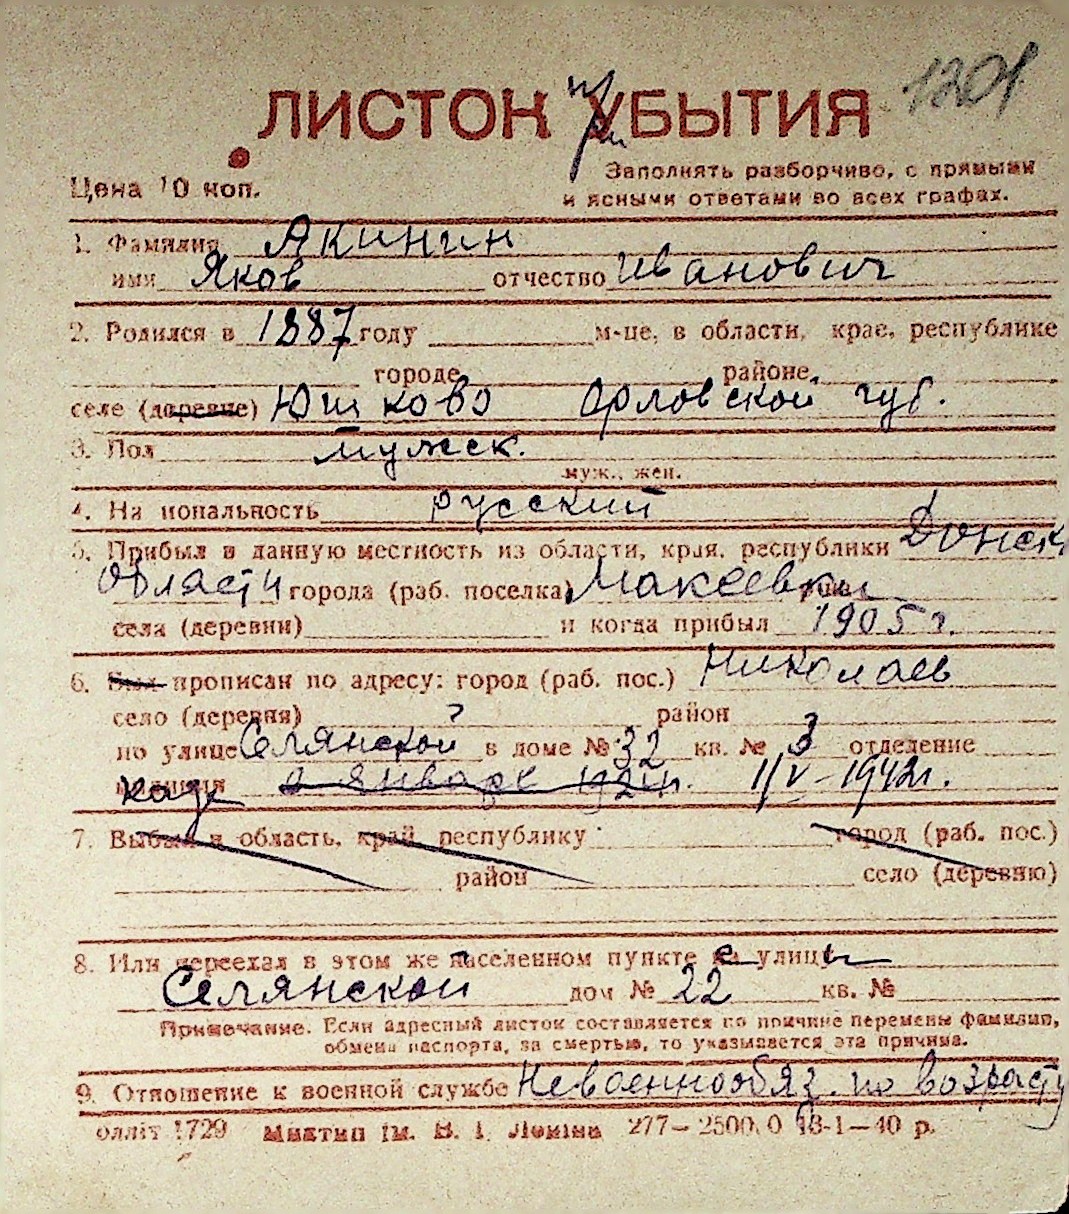 1201
ЛИСТОК УБЫТИЯ
при
Цена 10 коп.
Заполнять разборчиво, с прямыми
и ясными ответами во всех графах.
1. Фамилия Акинин
имя Яков отчество Иванович
2. Родился в 1887 году м-це, в области, крае, республике
городе районе
селе (деревне) Юшково Орловской губ.
3. Пол мужск.
муж., жен.
4. На иональность русский
5. Прибыл в данную местность из области, края, республики Донск
области города (раб. поселка) Макеевки
села (деревни) и когда прибыл 1905 г.
6. Был прописан по адресу: город (раб. пос.) Николаев
село (деревня) район
по улице Селянской в доме № 32 кв. № 3 отделение
милиции в январе 1924 г. 1/V-1942 г.
7. Выбыл в область, край, республику город (раб. пос.)
район село (деревню)
8. Или переехал в этом же населенном пункте с улицы
Селянской дом № 22 кв. №
Примечание. Если адресный листок составляется по причине перемены фамилии,
обмена паспорта, за смертью, то указывается эта причина.
9. Отношение к военной службе Невоеннообяз. по возрасту
олліт 1729 Миктип ім. В. І. Леніна 277—2500.0 13-1—40 р.